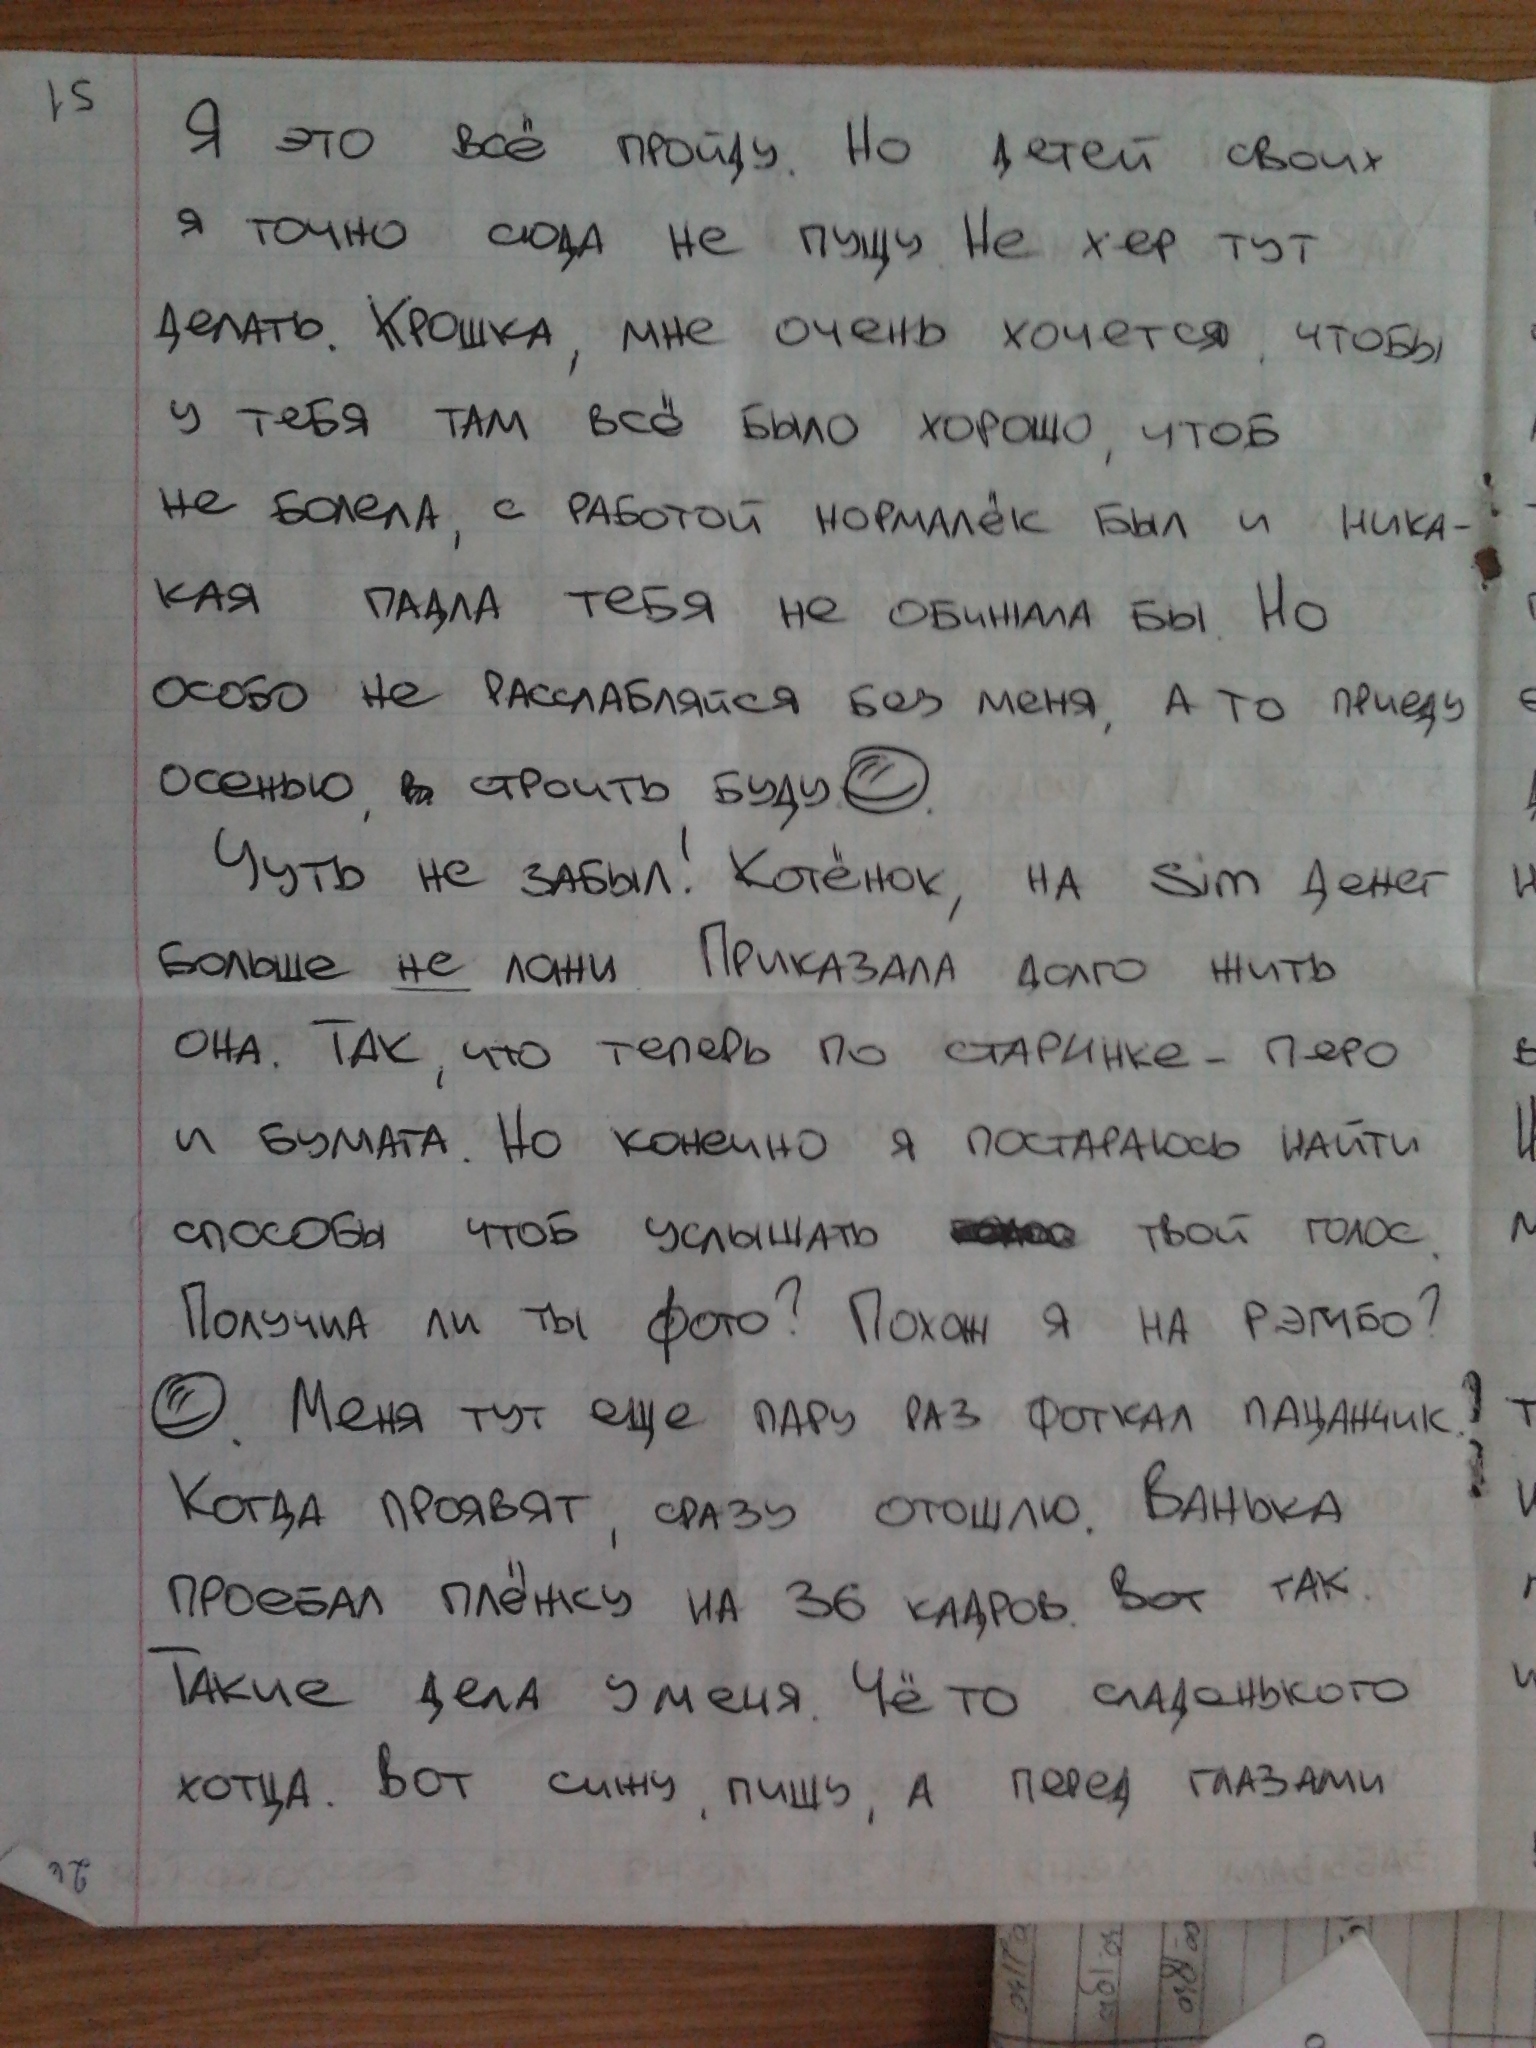 51
Я это всё пройду. Но детей своих
я точно сюда не пущу. Не хер тут
делать. Крошка, мне очень хочется, чтобы
у тебя там всё было хорошо, чтоб
не болела, с работой нормалёк был и ника-
кая падла тебя не обижала бы. Но
особо не расслабляйся без меня, а то приеду
осенью, строить буду.
Чуть не забыл! Котёнок, на Sim денег
больше не ложи. Приказала долго жить
она. Так, что теперь по старинке - перо
и бумага. Но конечно я постараюсь найти
способы чтоб услышать твой голос.
Получила ли ты фото? Похож я на Рэмбо?
. Меня тут еще пару раз фоткал пацанчик.
Когда проявят, сразу отошлю. Ванька
проебал плёнку на 36 кадров. Вот так.
Такие дела у меня. Чё то сладенького
хотца. Вот сижу, пишу, а перед глазами